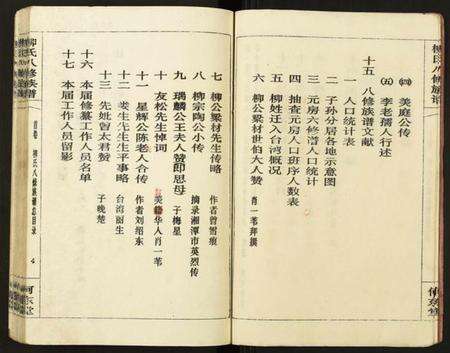 柳氏八修族谱
㈣ 美庭公传
㈤ 李老孺人行述
十五 八修族谱文献
一 人口统计表
二 子孙分居各地示意图
三 元房六修谱人口统计
四 抽查元房人口班序人数表
五 柳姓迁入台湾概况
六 柳公梁材世伯大人赞 肖一苇拜撰
七 柳公梁材先生传略 作者曾雪痕
八 柳宗陶公小传 摘录湘潭市英烈传
九 瑞麟公王夫人赞即思母 子梅星
十 友松先生悼词 美籍华人肖一苇
十一 星辉公陈老人合传 作者刘绍东
十二 娄生先生生平事略 台湾丽生
十三 先妣曾太君赞 子晚楚
十六 本届修纂工作人员名单
十七 本届工作人员留影
柳氏八修族谱
首卷 柳氏八修族谱总目录
河东堂